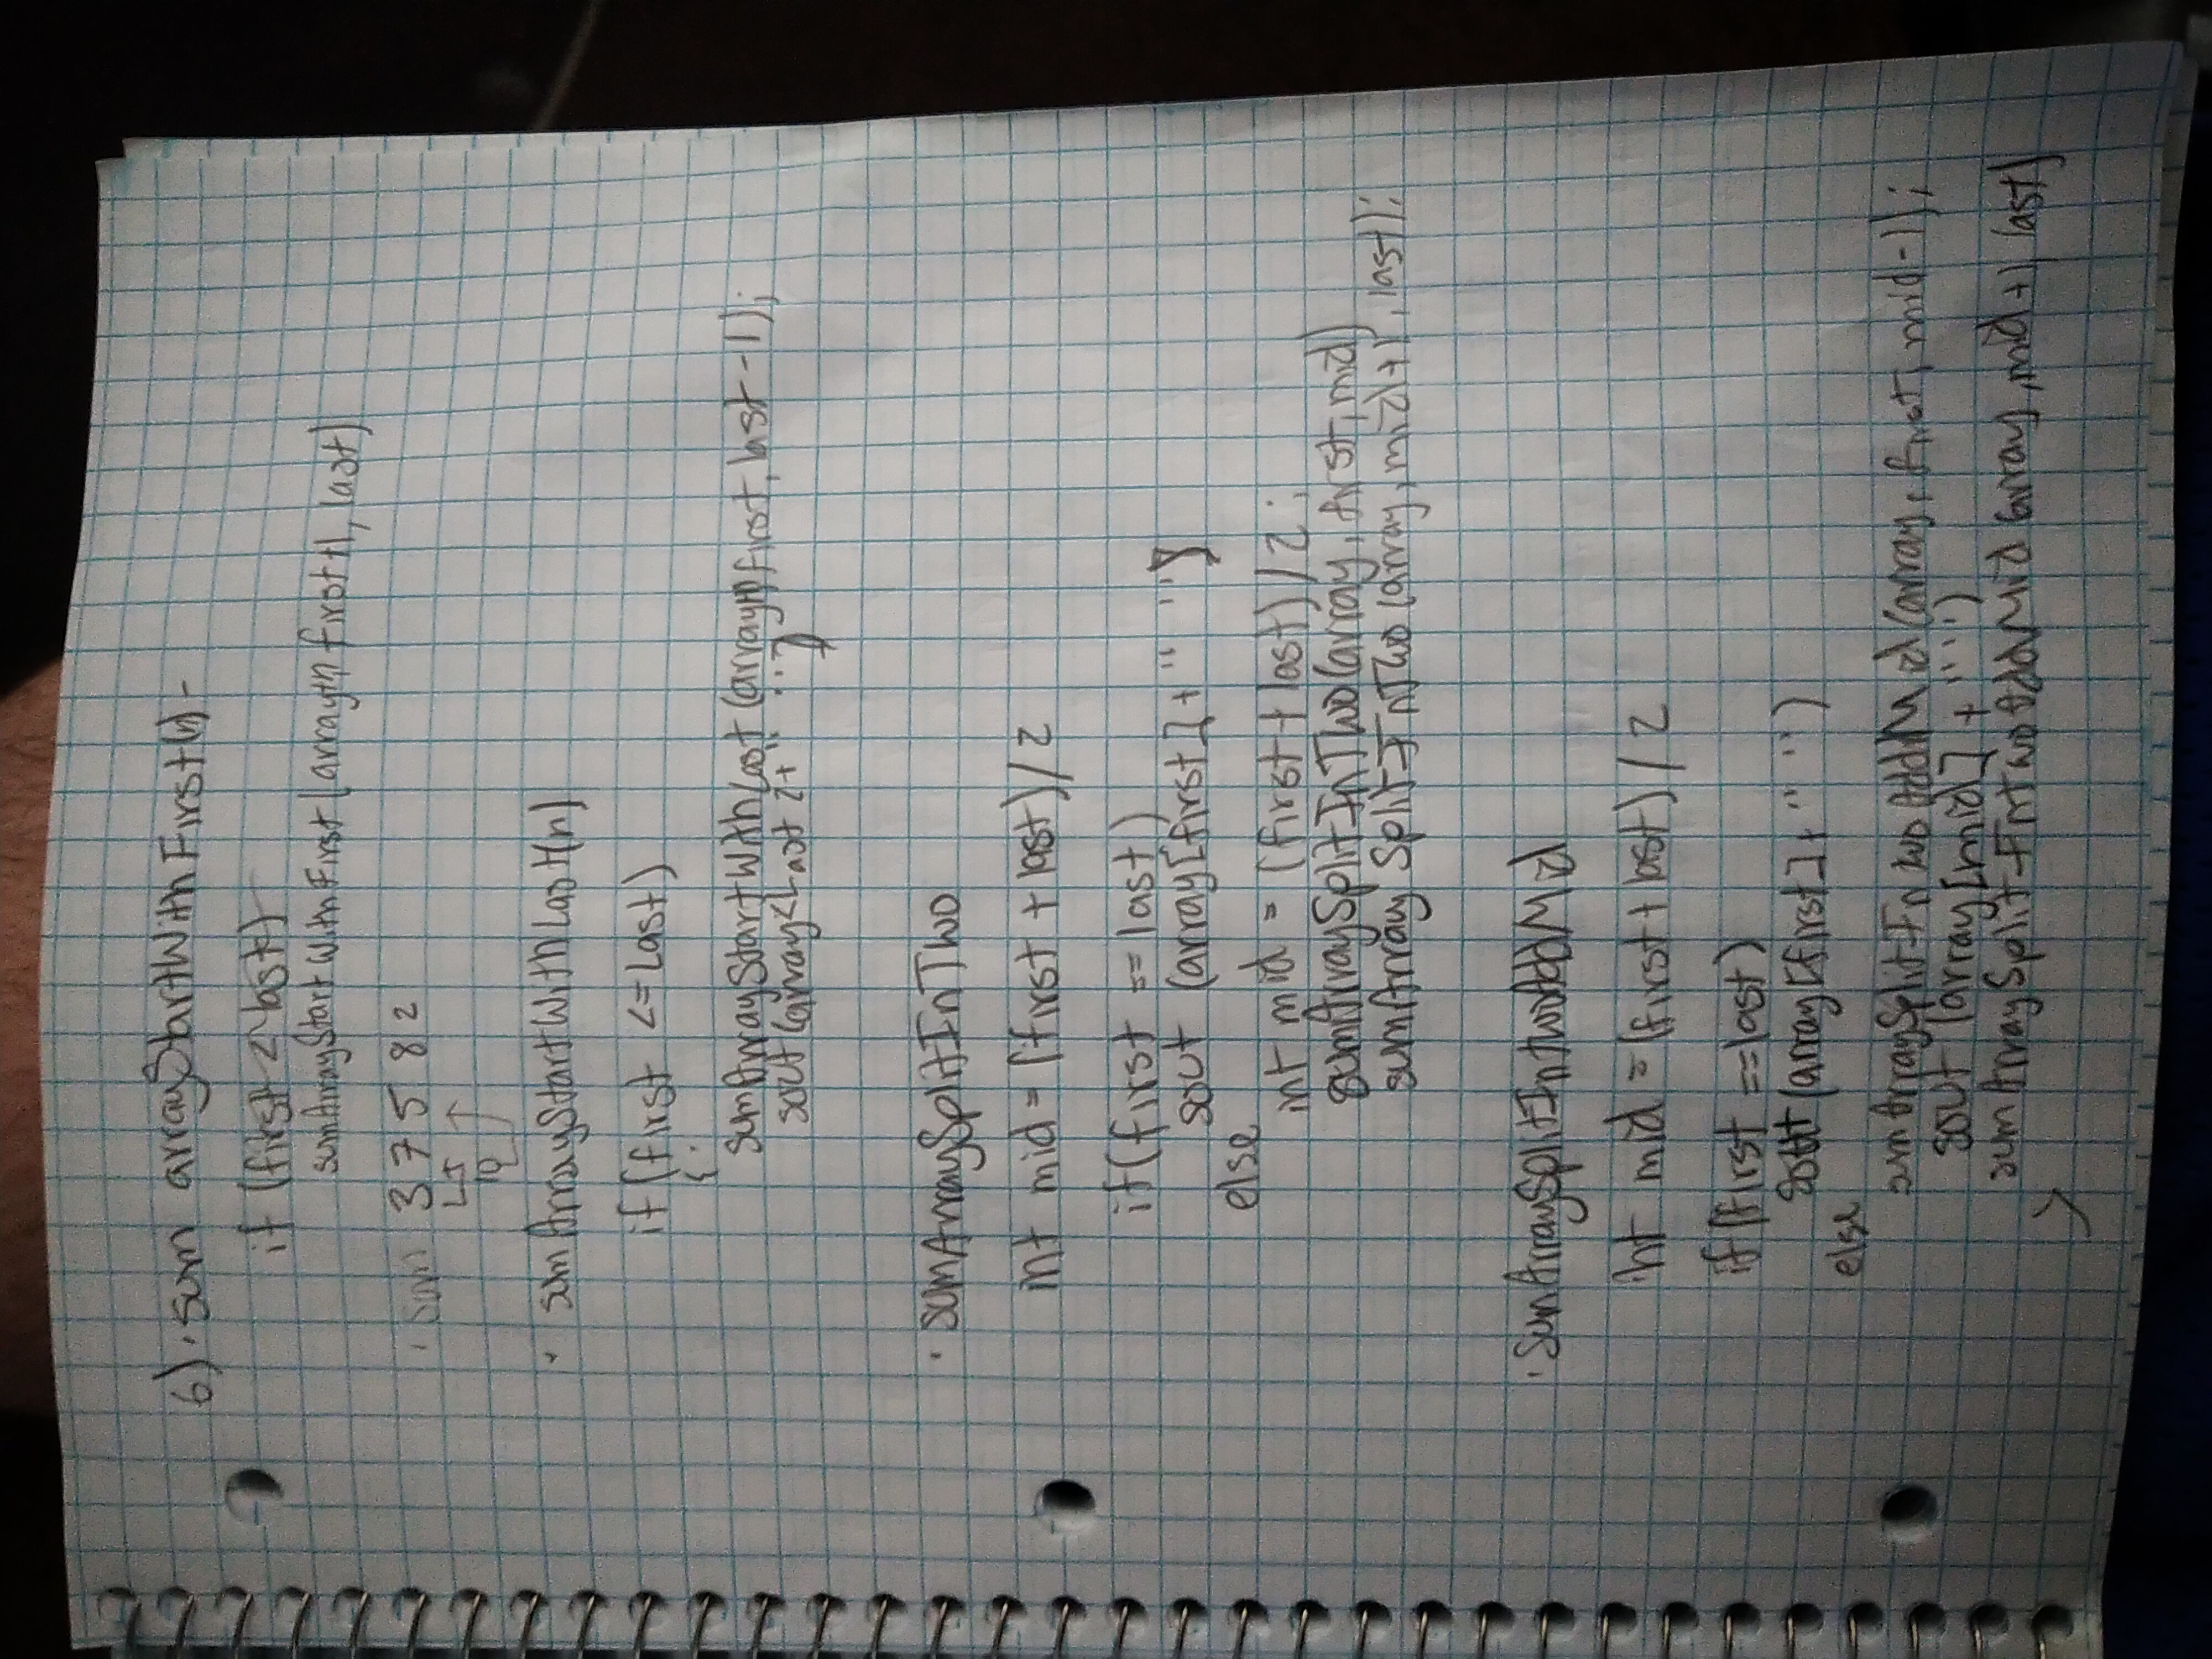 6) · sum arrayStartWithFirst(n) -
if (first < last)
sumArrayStartWithFirst(array first+1, last)
· sum 3 7 5 8 2
10
· sumArrayStartWithLast(n)
if (first <= Last)
{
sumArrayStartWithLast (array first, last -1);
sout (array<Last 2+ " ")
· sumArraySplitInTwo
int mid = (first + last)/2
if (first == last)
sout (array[first] + " ")
else
int mid = (first + last)/2;
sumArraySplitInTwo(array, first, mid)
sumArraySplitInTwo(array, mid+1, last);
· SumArraySplitIntwoAddMid
int mid = (first + last) / 2
if (first == last)
sout (array[first] + " ")
else
sumArraySplitIntwoAddMid(array, first, mid-1);
sout (array[mid] + " ")
sumArraySplitIntwoAddMid (array, mid+1 last)
}